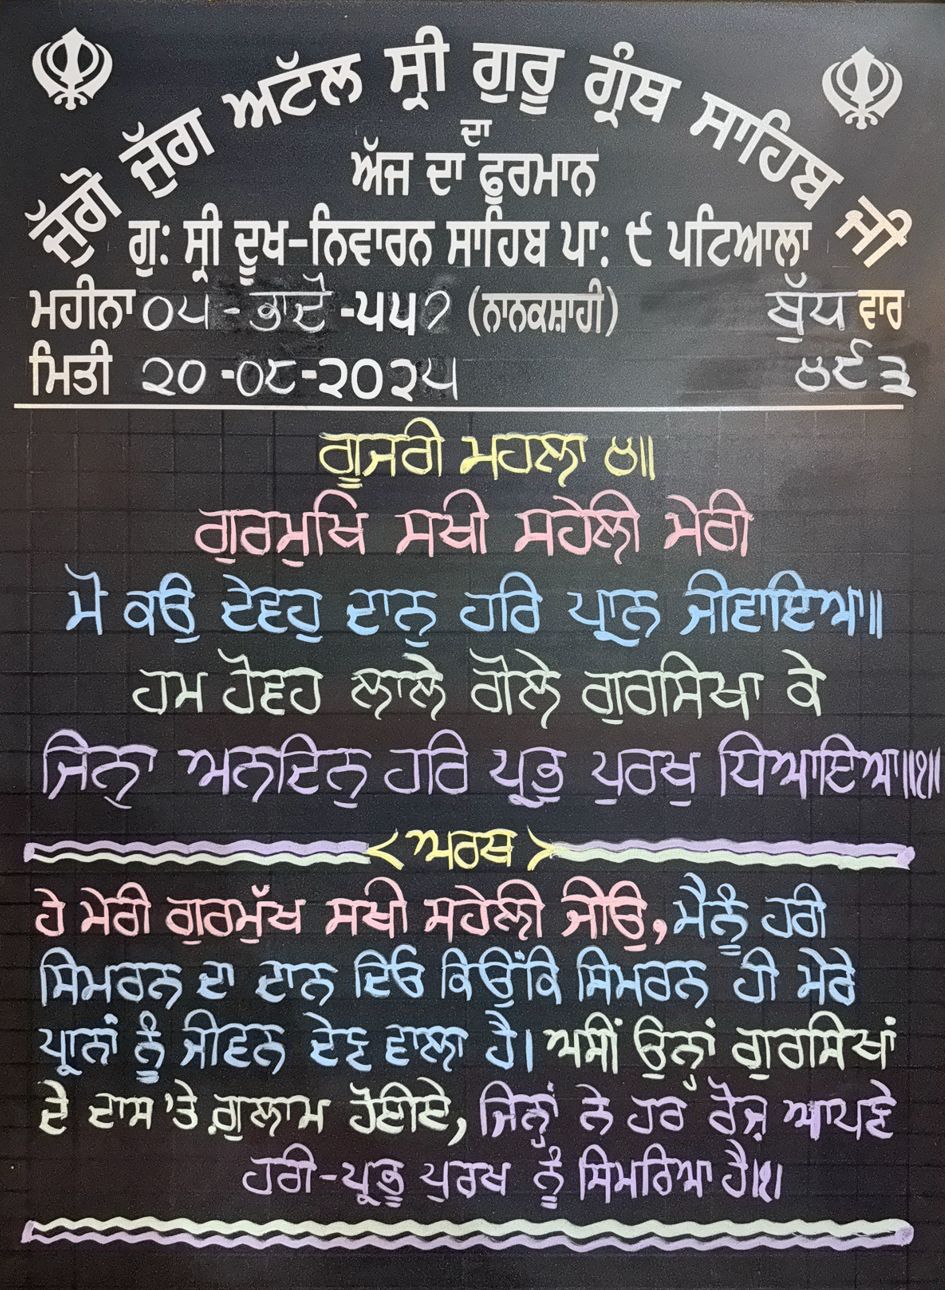 ਜੁੱਗੋ ਜੁੱਗ ਅਟੱਲ ਸ੍ਰੀ ਗੁਰੂ ਗ੍ਰੰਥ ਸਾਹਿਬ ਜੀ
ਦਾ
ਅੱਜ ਦਾ ਫੂਰਮਾਨ
ਗੁ: ਸ੍ਰੀ ਦੂਖ-ਨਿਵਾਰਨ ਸਾਹਿਬ ਪਾ: ੯ ਪਟਿਆਲਾ
ਮਹੀਨਾ ੦੫ - ਭਾਦੋਂ -੫੫੭ (ਨਾਨਕਸ਼ਾਹੀ) ਬੁੱਧ ਵਾਰ
ਮਿਤੀ ੨੦ -੦੮-੨੦੨੫ ੪੯੩
ਗੂਜਰੀ ਮਹਲਾ ੪॥
ਗੁਰਮੁਖਿ ਸਖੀ ਸਹੇਲੀ ਮੇਰੀ
ਮੋ ਕਉ ਦੇਵਹੁ ਦਾਨੁ ਹਰਿ ਪ੍ਰਾਨ ਜੀਵਾਇਆ॥
ਹਮ ਹੋਵਹ ਲਾਲੇ ਗੋਲੇ ਗੁਰਸਿਖਾ ਕੇ
ਜਿਨ੍ਹਾ ਅਨਦਿਨੁ ਹਰਿ ਪ੍ਰਭੁ ਪੁਰਖੁ ਧਿਆਇਆ॥੧॥
<ਅਰਥ>
ਹੇ ਮੇਰੀ ਗੁਰਮੁੱਖ ਸਖੀ ਸਹੇਲੀ ਜੀਓ, ਮੈਨੂੰ ਹਰੀ
ਸਿਮਰਨ ਦਾ ਦਾਨ ਦਿਓ ਕਿਉਂਕਿ ਸਿਮਰਨ ਹੀ ਮੇਰੇ
ਪ੍ਰਾਨਾਂ ਨੂੰ ਜੀਵਨ ਦੇਣ ਵਾਲਾ ਹੈ। ਅਸੀਂ ਉਨ੍ਹਾਂ ਗੁਰਸਿਖਾਂ
ਦੇ ਦਾਸ 'ਤੇ ਗ਼ੁਲਾਮ ਹੋਈਏ, ਜਿਨ੍ਹਾਂ ਨੇ ਹਰ ਰੋਜ਼ ਆਪਣੇ
ਹਰੀ-ਪ੍ਰਭੂ ਪੁਰਖ ਨੂੰ ਸਿਮਰਿਆ ਹੈ।੧।